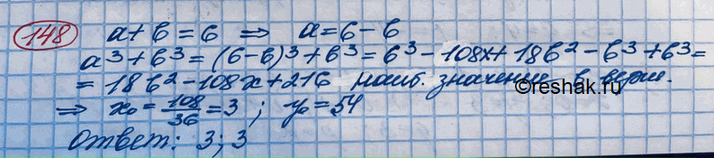 148 a + b = 6 ⇒ a = 6 - b
a³ + b³ = (6-b)³ + b³ = 6³ - 108x + 18b² - b³ + b³ =
= 18b² - 108x + 216 наиб. значение в верш.
©reshak.ru
⇒ x₀ = 108/36 = 3 ; y₀ = 54
Ответ: 3; 3